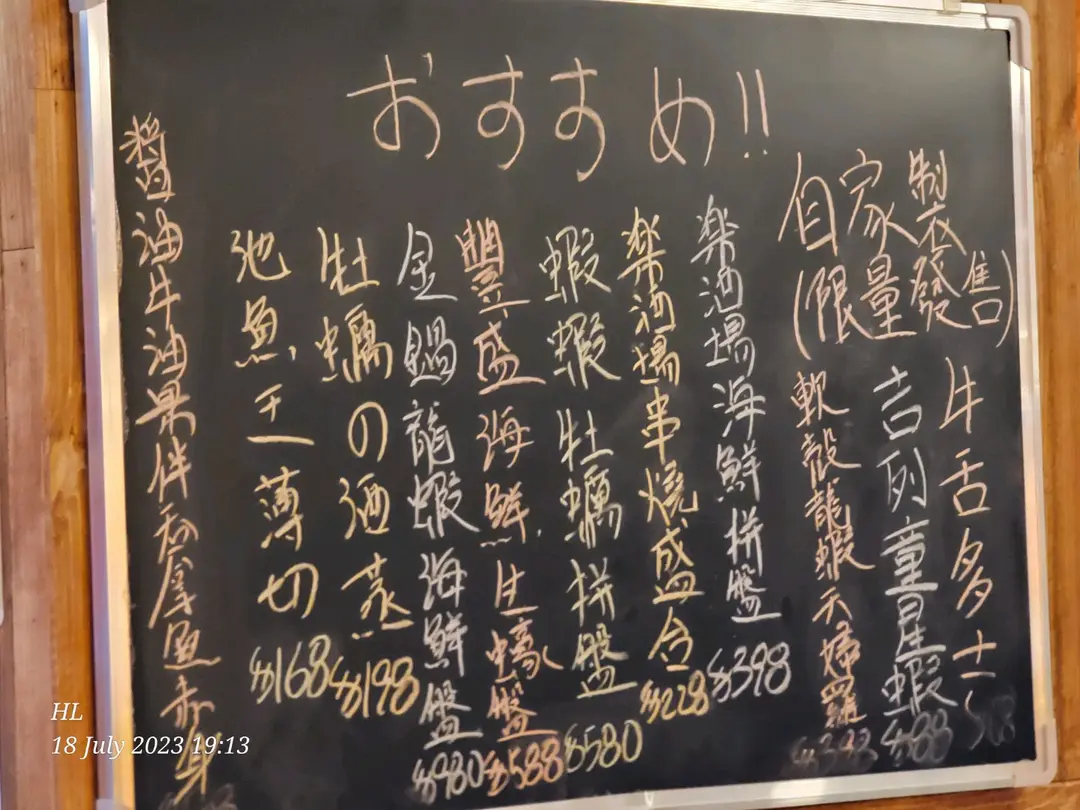 おすすめ!!
自家製
(限量發售)
牛舌多士
吉列童星蝦 $88
軟殼龍蝦天婦羅
楽酒場海鮮拼盤 $398
楽酒場串燒盛合 $228
蝦蝦牡蠣拼盤 $580
豐盛海鮮生蠔盤 $588
金鍋龍蝦海鮮盤 $980
牡蠣の酒蒸 $198
池魚 薄切 $168
醬油牛油果伴吞拿魚赤身
HL
18 July 2023 19:13